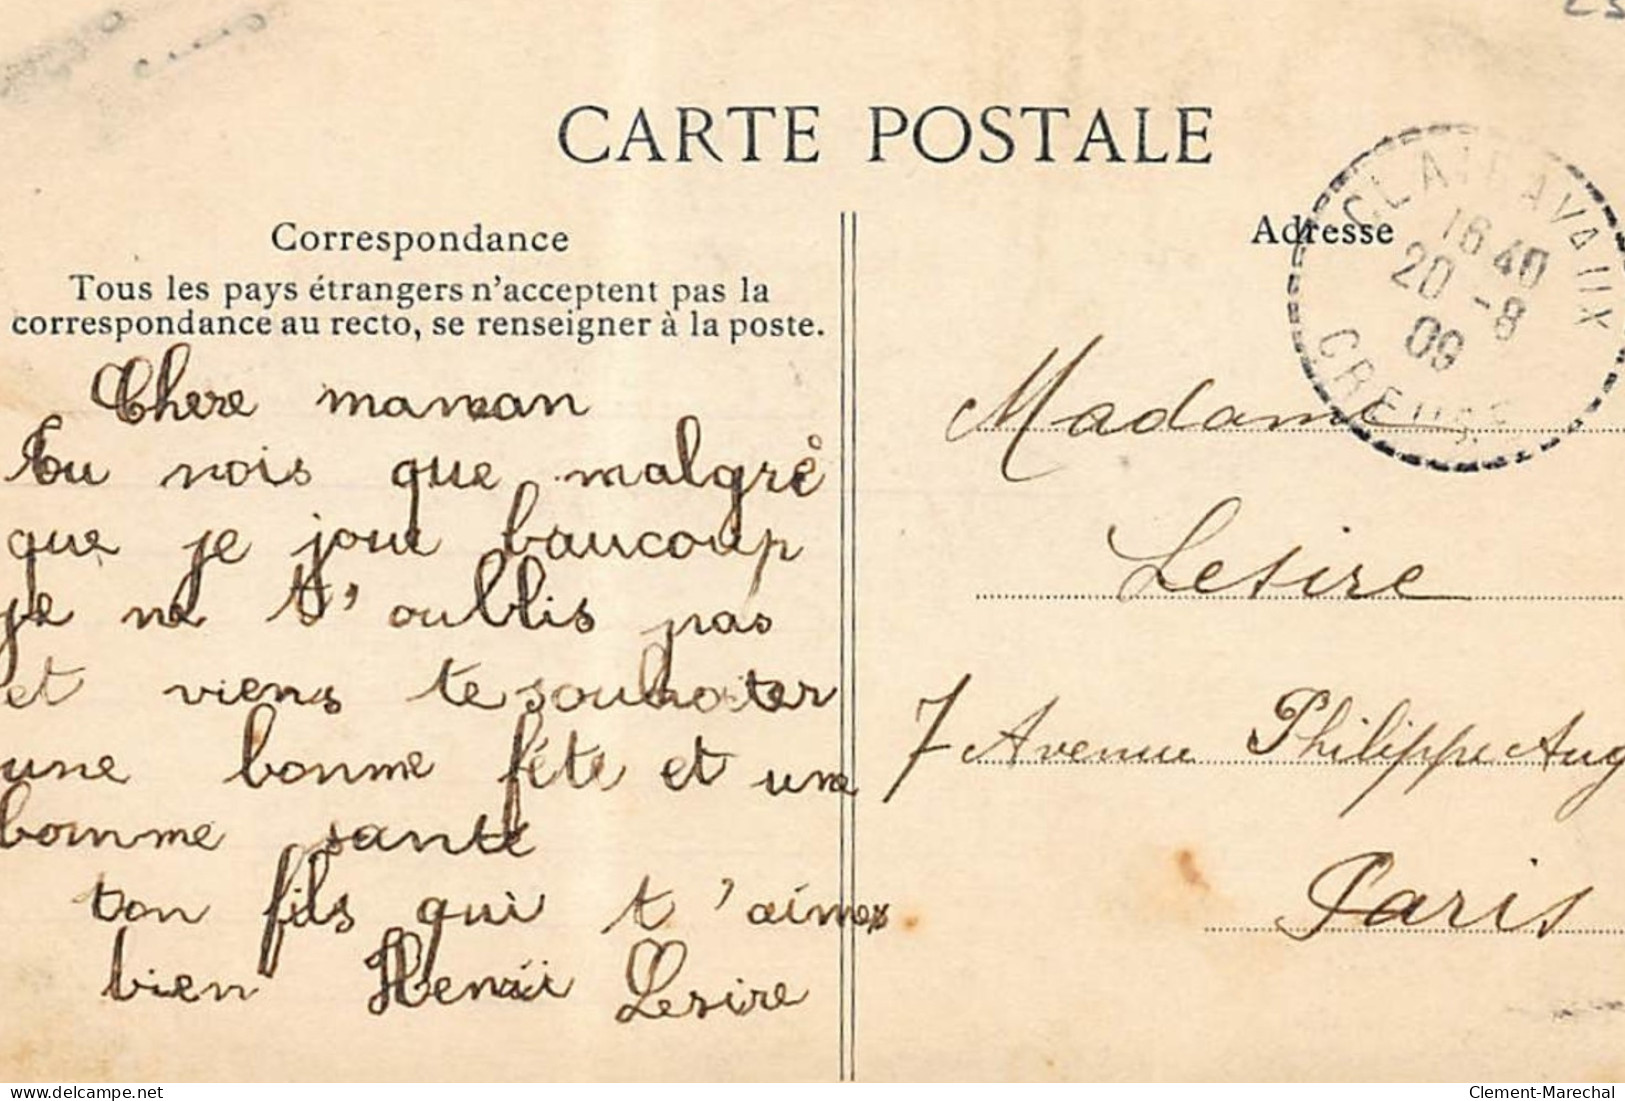 CARTE POSTALE
Correspondance
Tous les pays étrangers n'acceptent pas la
correspondance au recto, se renseigner à la poste.
Chere maman
tu vois que malgré
que je joue baucoup
je ne t'oublis pas
et viens te souhaiter
une bonne fête et une
bonne santé
ton fils qui t'aime
bien Henri Lesire
Adresse
CLAIRAVAUX
16 40
20 - 8
09
CREUSE
Madame
Lesire
7 Avenue Philippe Aug
Paris
delcampe.net
Clement-Marechal